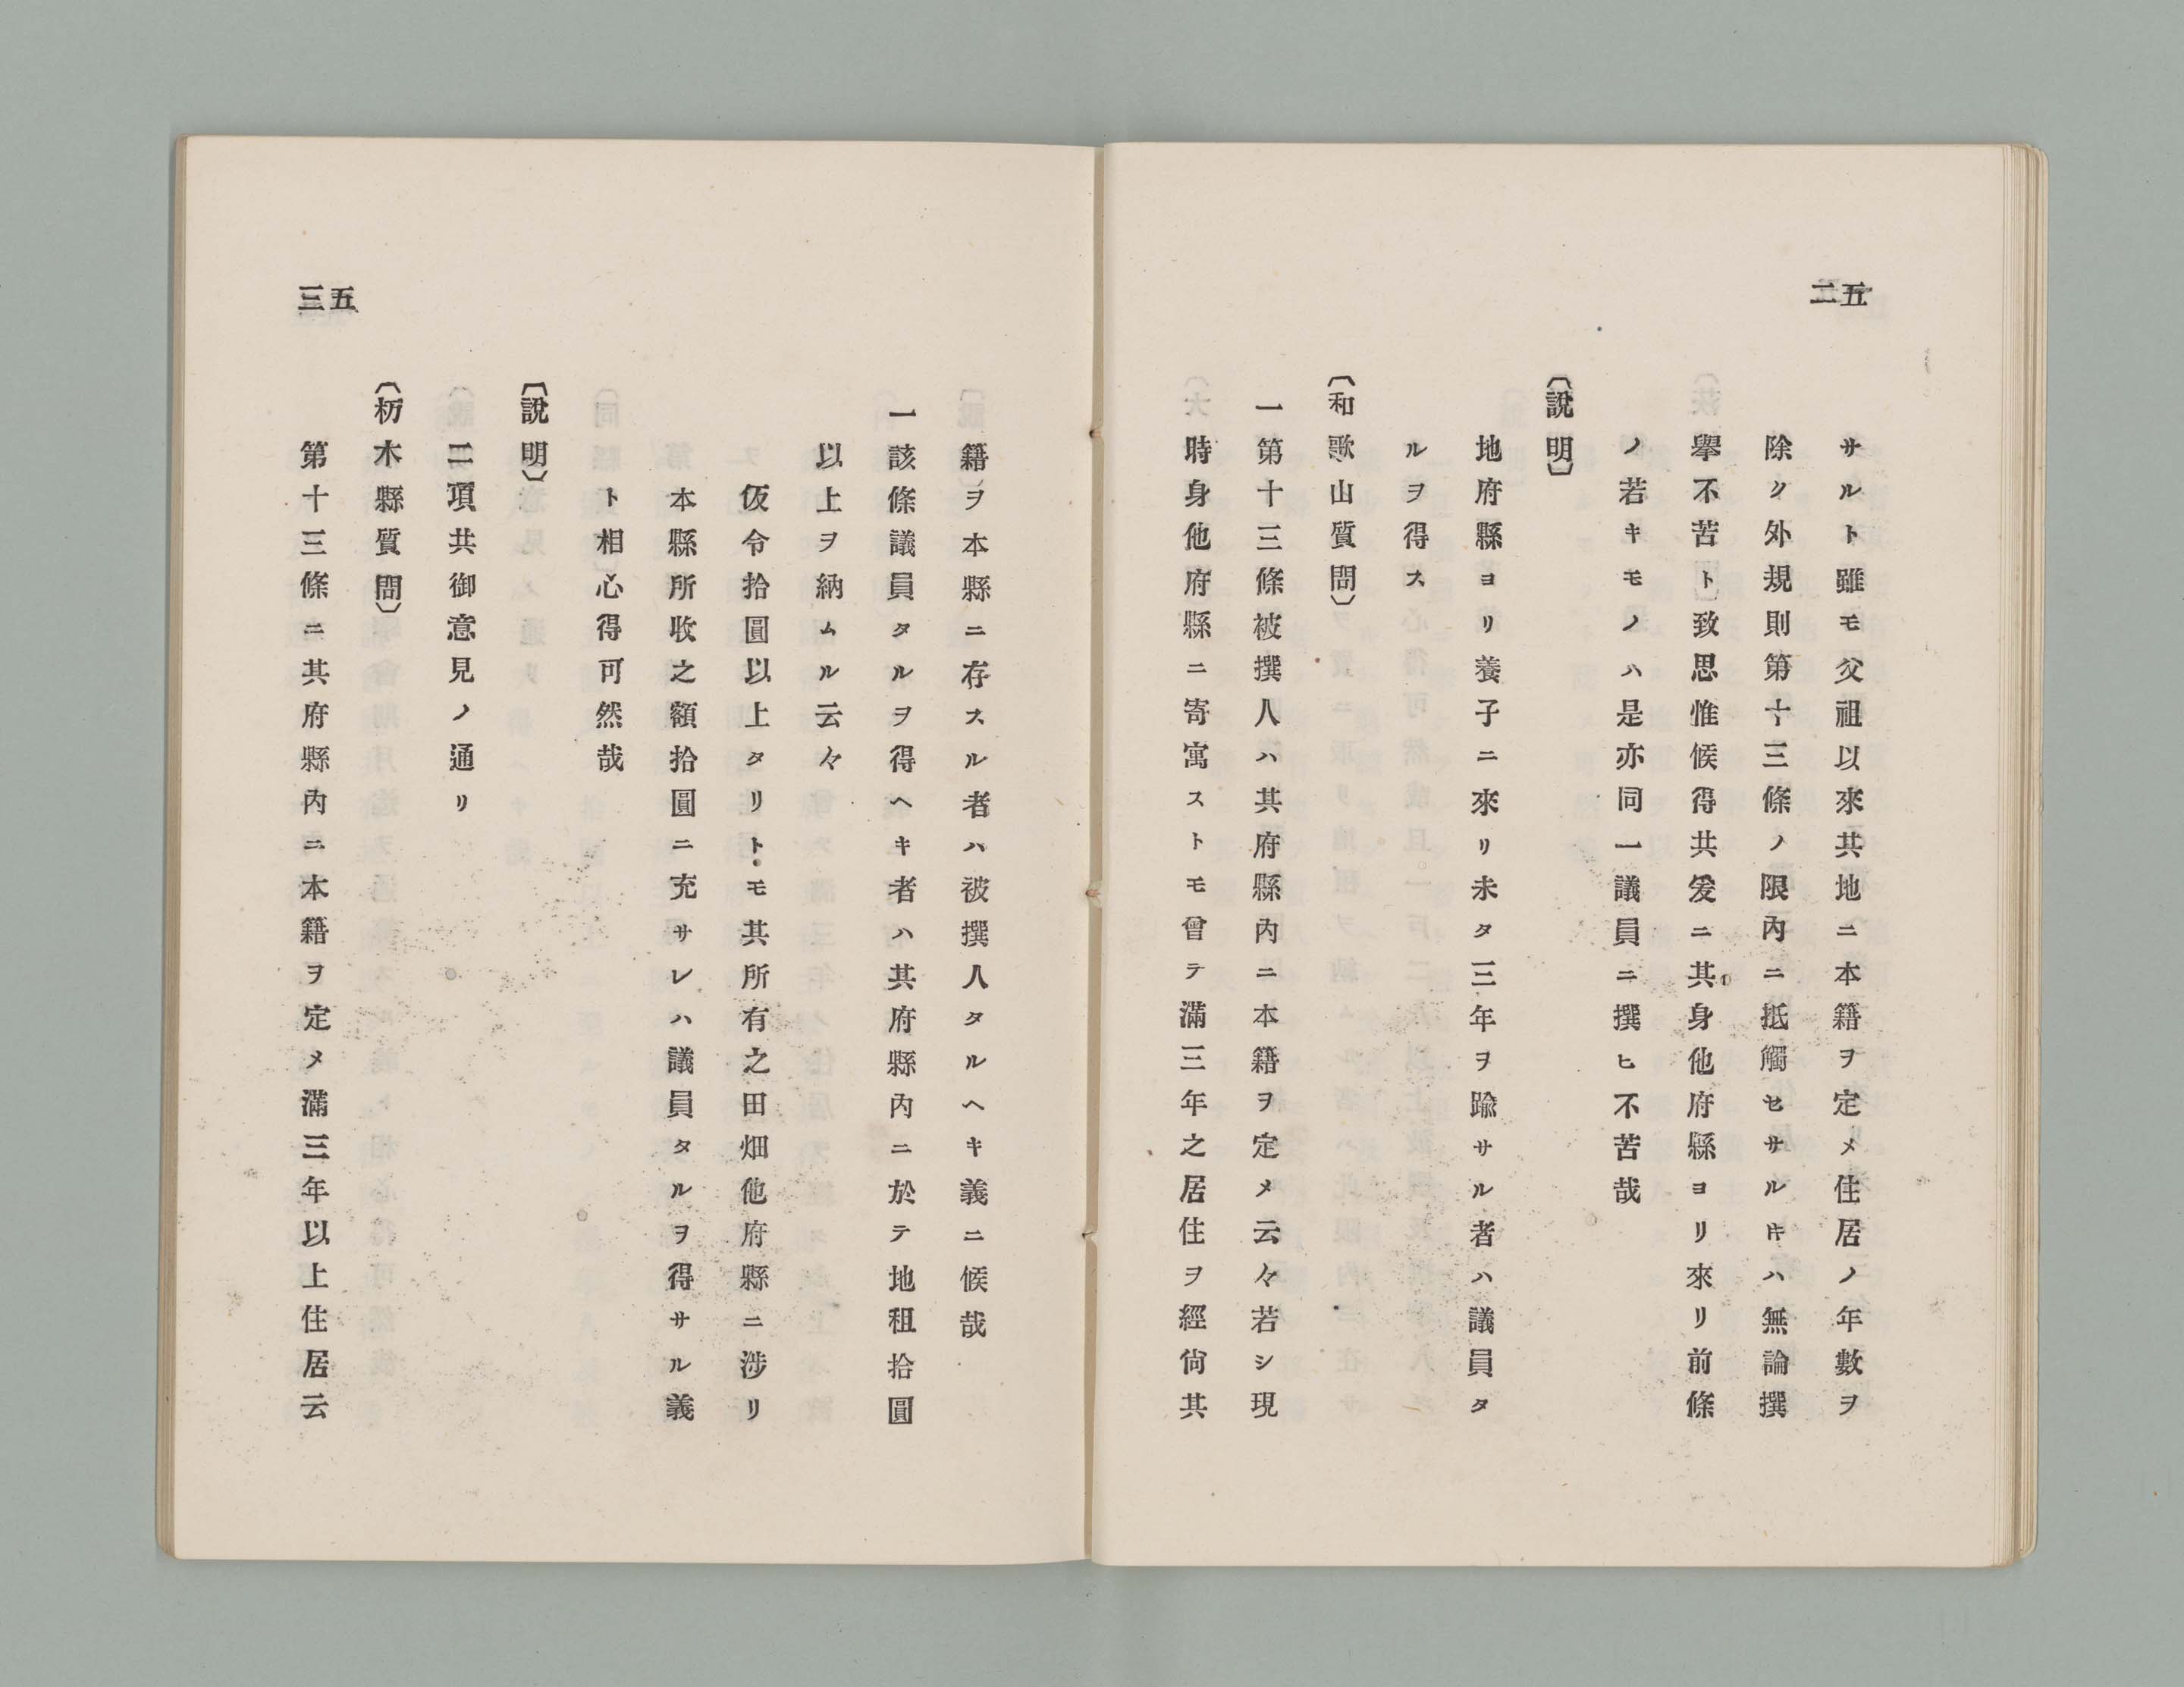 二五
サルト雖モ父祖以來其地ニ本籍ヲ定メ住居ノ年數ヲ
除ク外規則第十三條ノ限內ニ抵觸セサルキハ無論撰
擧不苦ト致思惟候得共爰ニ其身他府縣ヨリ來リ前條
ノ若キモノハ是亦同一議員ニ撰ヒ不苦哉
〔說明〕
地府縣ヨリ養子ニ來リ未タ三年ヲ踰サル者ハ議員タ
ルヲ得ス
〔和歌山質問〕
一第十三條被撰人ハ其府縣內ニ本籍ヲ定メ云々若シ現
時身他府縣ニ寄寓ストモ曾テ滿三年之居住ヲ經尙其
三五
籍ヲ本縣ニ存スル者ハ被撰人タルヘキ義ニ候哉
一該條議員タルヲ得ヘキ者ハ其府縣內ニ於テ地租拾圓
以上ヲ納ムル云々
仮令拾圓以上タリトモ其所有之田畑他府縣ニ涉リ
本縣所收之額拾圓ニ充サレハ議員タルヲ得サル義
ト相心得可然哉
〔說明〕
二項共御意見ノ通リ
〔枥木縣質問〕
第十三條ニ其府縣內ニ本籍ヲ定メ滿三年以上住居云